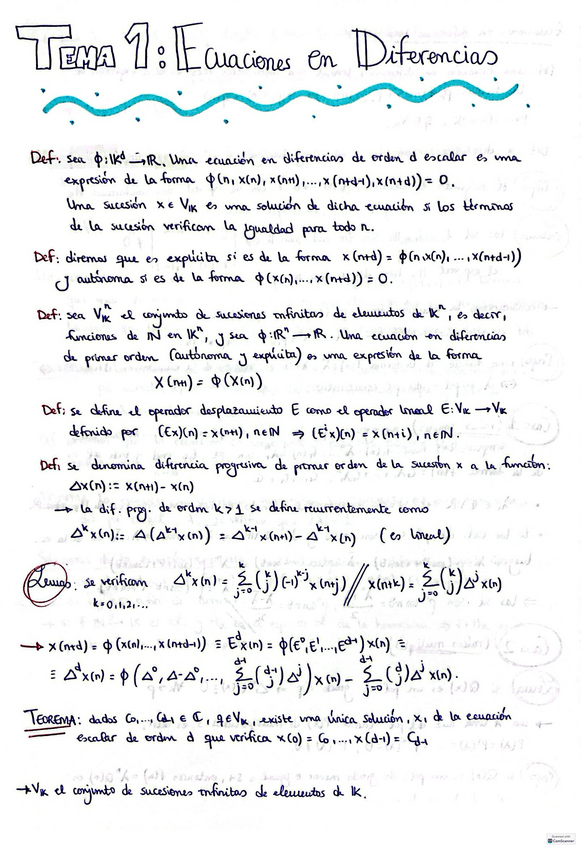 TEMA 1: Ecuaciones en Diferencias
Def: sea ϕ: 𝕂^d → ℝ. Una ecuación en diferencias de orden d escalar es una
expresión de la forma ϕ(n, x(n), x(n+1), ..., x(n+d-1), x(n+d)) = 0.
Una sucesión x ∈ V_𝕂 es una solución de dicha ecuación si los términos
de la sucesión verifican la igualdad para todo n.
Def: diremos que es explícita si es de la forma x(n+d) = ϕ(n, x(n), ..., x(n+d-1))
y autónoma si es de la forma ϕ(x(n), ..., x(n+d)) = 0.
Def: sea V_𝕂^n el conjunto de sucesiones infinitas de elementos de 𝕂^n, es decir,
funciones de ℕ en 𝕂^n, y sea ϕ: ℝ^n → ℝ. Una ecuación en diferencias
de primer orden (autónoma y explícita) es una expresión de la forma
X(n+1) = ϕ(X(n))
Def: se define el operador desplazamiento E como el operador lineal E: V_𝕂 → V_𝕂
definido por (Ex)(n) = x(n+1), n∈ℕ ⇒ (E^i x)(n) = x(n+i), n∈ℕ.
Def: se denomina diferencia progresiva de primer orden de la sucesión x a la función:
Δx(n) := x(n+1) - x(n)
→ la dif. prog. de orden k>1 se define recurrentemente como
Δ^k x(n) := Δ(Δ^{k-1} x(n)) = Δ^{k-1} x(n+1) - Δ^{k-1} x(n) (es lineal)
Lema: se verifican Δ^k x(n) = Σ_{j=0}^{k} (k j) (-1)^{k-j} x(n+j) // x(n+k) = Σ_{j=0}^{k} (k j) Δ^j x(n)
k=0,1,2,...
→ x(n+d) = ϕ(x(n), ..., x(n+d-1)) ≡ E^d x(n) = ϕ(E^0, E^1, ..., E^{d-1}) x(n) ≡
≡ Δ^d x(n) = ϕ(Δ^0, Δ-Δ^0, ..., Σ_{j=0}^{d-1} (d-1 j) Δ^j) x(n) - Σ_{j=0}^{d-1} (d j) Δ^j x(n).
TEOREMA: dados C_0, ..., C_{d-1} ∈ ℂ, q∈V_𝕂, existe una única solución, x, de la ecuación
escalar de orden d que verifica x(0) = C_0, ..., x(d-1) = C_{d-1}
→ V_𝕂 el conjunto de sucesiones infinitas de elementos de 𝕂.
Scanned with
CamScanner